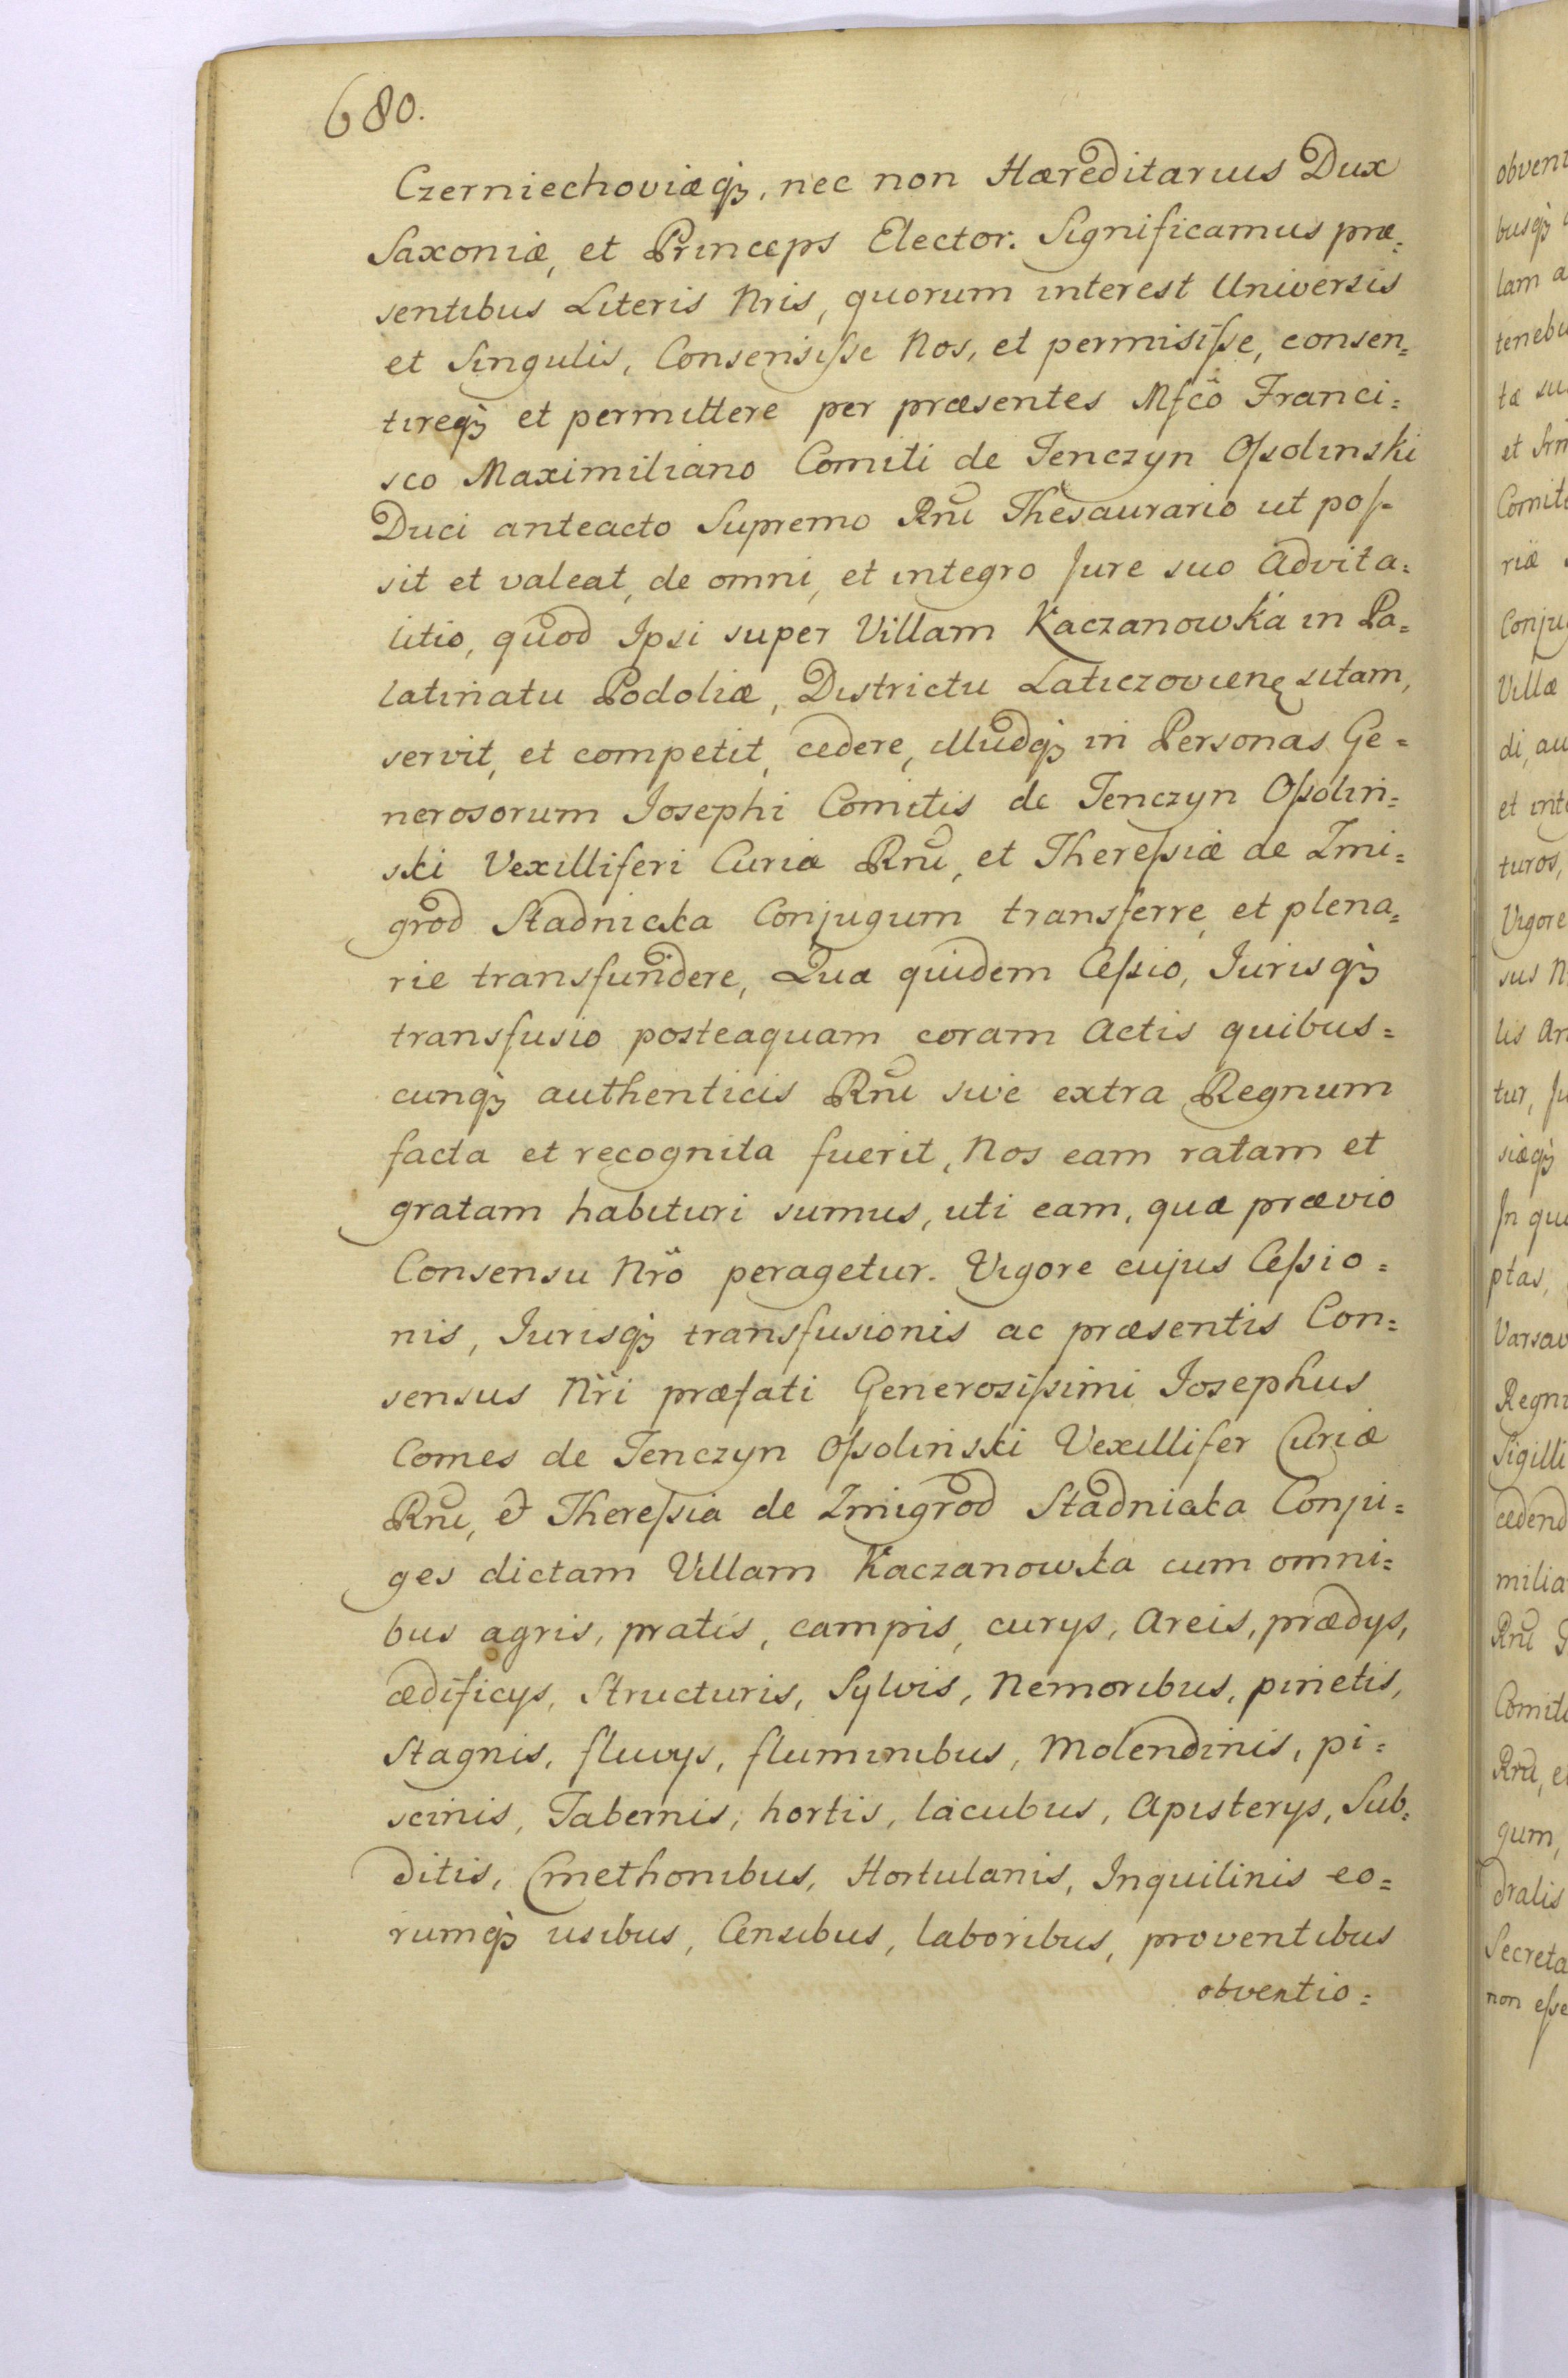 680.
Czerniechoviæq₃, nec non Hæreditarius Dux
Saxoniæ, et Princeps Elector. Significamus præ=
sentibus Literis Nris, quorum interest Universis
et Singulis, Consensiſse Nos, et permisiſse, consen=
tireq₃ et permittere per præsentes Mfcô Franci=
sco Maximiliano Comiti de Tenczyn Oſsolinski
Duci anteacto Supremo Rnĩ Thesaurario ut poſ=
sit et valeat, de omni, et integro Jure suo Advita=
litio, quod Ipsi super Villam Kaczanowka in Pa=
latinatu Podoliæ, Districtu Laticzovienę sitam,
servit, et competit, cedere, illudq₃ in Personas Ge=
nerosorum Josephi Comitis de Tenczyn Oſsolin=
ski Vexilliferi Curiæ Rnĩ, et Thereſsiæ de Zmi=
grod Stadnicka Conjugum transferre, et plena=
rie transfundere, Quæ quidem Ceſsio, Jurisq₃
transfusio posteaquam coram Actis quibus=
cunq₃ authenticis Rnĩ sive extra Regnum
facta et recognita fuerit, Nos eam ratam et
gratam habituri sumus, uti eam, quæ prævio
Consensu Nrõ peragetur. Vigore cujus Ceſsio=
nis, Jurisq₃ transfusionis ac præsentis Con=
sensus Nri præfati Generosiſsimi Josephus
Comes de Tenczyn Oſsolinski Vexillifer Curiæ
Rnĩ, & Thereſsia de Zmigrod Stadnicka Conju=
ges dictam Villam Kaczanowka cum omni=
bus agris, pratis, campis, curys, Areis, prædys,
ædificys, Structuris, Sylvis, Nemoribus, pinetis,
Stagnis, fluvys, fluminibus, Molendinis, pi=
scinis, Tabernis, hortis, lacubus, Apisterys, Sub=
ditis, Cmethonibus, Hortulanis, Inquilinis eo=
rumq₃ usibus, Censibus, laboribus, proventibus
obventio=